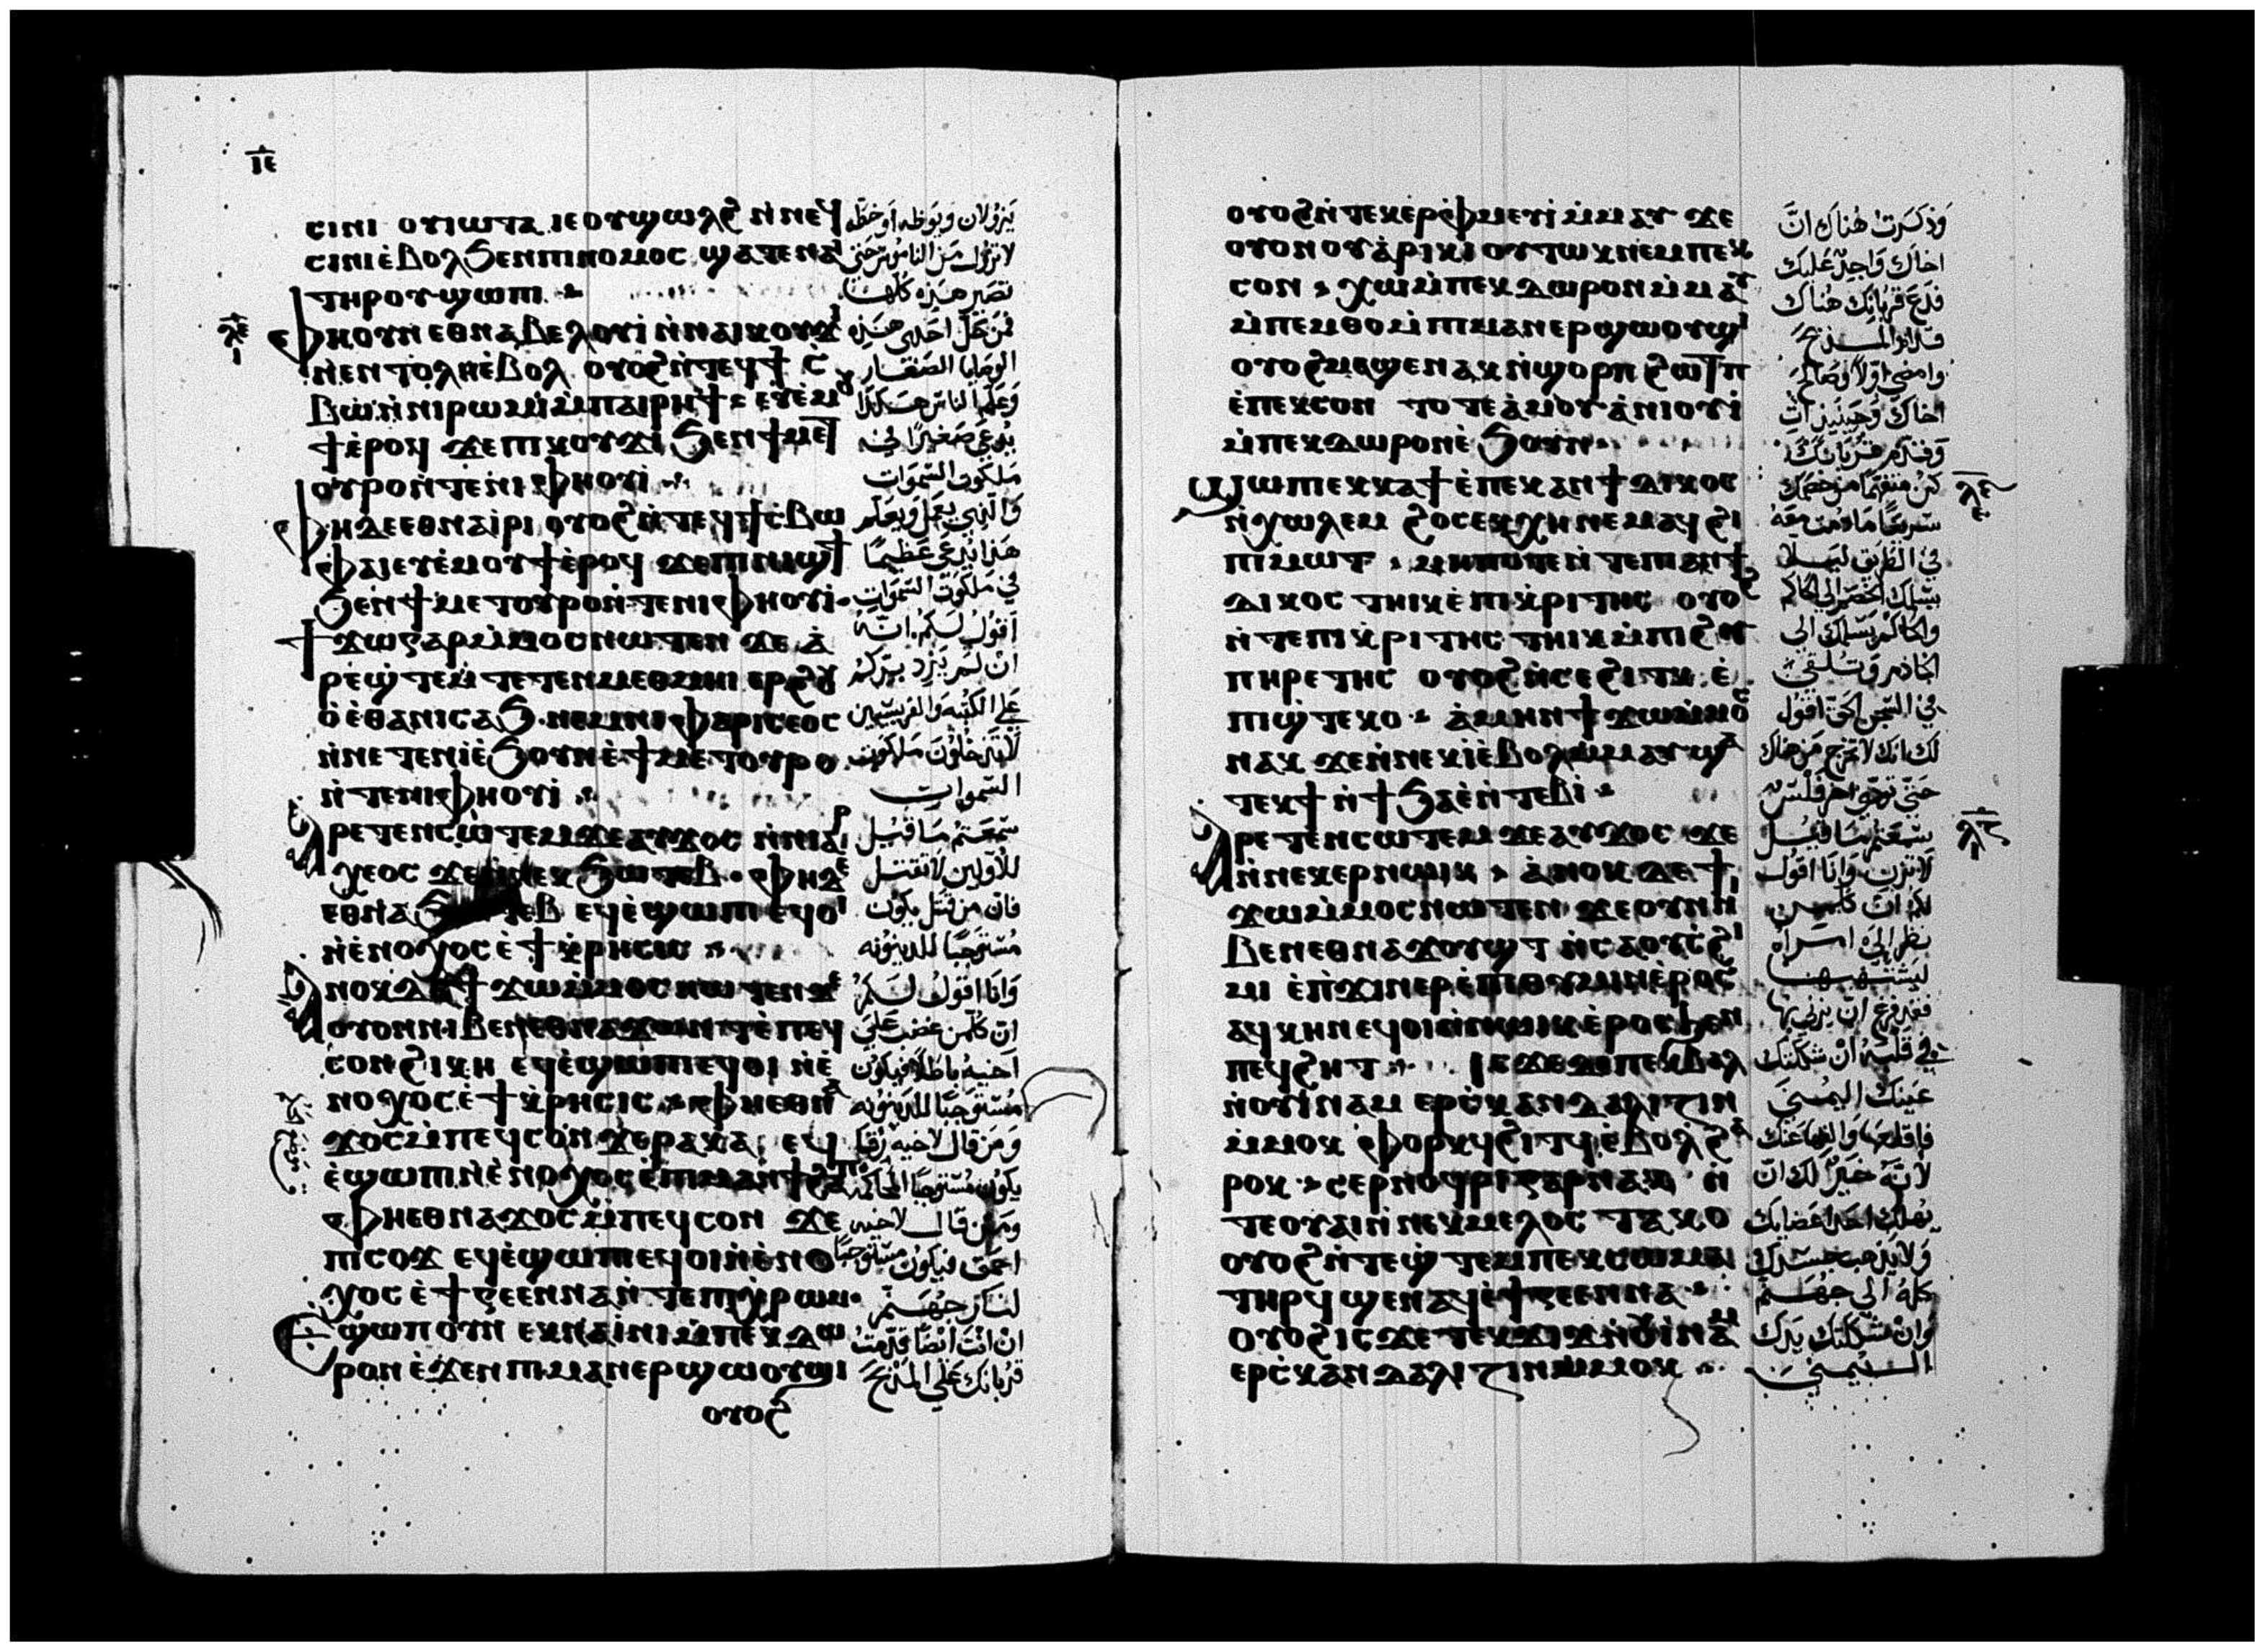 ⲓⲉ
ⲥⲓⲛⲓ ⲟⲩⲓⲱⲧⲁ ⲓⲉ ⲟⲩϣⲱⲗϩ ⲛ̇ⲛⲉϥ
ⲥⲓⲛⲓ ⲉ̇ⲃⲟⲗ ϧⲉⲛ ⲡⲓⲛⲟⲙⲟⲥ ϣⲁⲧⲉ ⲛⲁⲓ
ⲧⲏⲣⲟⲩ ϣⲱⲡⲓ
ⲫⲏ ⲟⲩⲛ ⲉⲑⲛⲁⲃⲉⲗ ⲟⲩⲓ̇ ⲛ̇ⲛⲁⲓⲕⲟⲩϫⲓ
ⲛ̇ⲉⲛⲧⲟⲗⲏ ⲉ̇ⲃⲟⲗ ⲟⲩⲟϩ ⲛ̇ⲧⲉϥϯ ⲥ̇
ⲃⲱ ⲛ̇ⲛⲓⲣⲱⲙⲓ ⲙ̇ⲡⲁⲓⲣⲏϯ ⲉⲩⲉ̇ⲙⲟⲩ
ϯ ⲉ̇ⲣⲟϥ ϫⲉ ⲡⲓⲕⲟⲩϫⲓ ϧⲉⲛ ϯⲙⲉⲧ
ⲟⲩⲣⲟ ⲛ̇ⲧⲉ ⲛⲓⲫⲏⲟⲩⲓ̇
ⲫⲏ ⲇⲉ ⲉⲑⲛⲁⲓ̇ⲣⲓ ⲟⲩⲟϩ ⲛ̇ⲧⲉϥϯⲥ̇ⲃⲱ
ⲫⲁⲓ ⲉⲩⲉ̇ⲙⲟⲩϯ ⲉ̇ⲣⲟϥ ϫⲉ ⲡⲓⲛⲓϣϯ
ϧⲉⲛ ϯⲙⲉⲧⲟⲩⲣⲟ ⲛ̇ⲧⲉ ⲛⲓⲫⲏⲟⲩⲓ̇
ϯϫⲱ ⲅⲁⲣ ⲙ̇ⲙⲟⲥ ⲛⲱⲧⲉⲛ ϫⲉ ⲁ̇
ⲣⲉϣ̇ⲧⲉⲙ ⲧⲉⲧⲉⲛⲙⲉⲑⲙⲏⲓ ⲉⲣϩⲟⲩ
ⲟ̇ ⲉ̇ⲑⲁ ⲛⲓⲥⲁϧ ⲛⲉⲙ ⲛⲓⲫⲁⲣⲓⲥⲉⲟⲥ
ⲛ̇ⲛⲉⲧⲉⲛⲓ̀ ⲉ̇ϧⲟⲩⲛ ⲉ̇ϯⲙⲉⲧⲟⲩⲣⲟ
ⲛ̇ⲧⲉ ⲛⲓⲫⲏⲟⲩⲓ̇
ⲁⲣⲉⲧⲉⲛⲥⲱⲧⲉⲙ ϫⲉ ⲁⲩϫⲟⲥ ⲛ̇ⲛⲓⲁⲣ
ⲭⲉⲟⲥ ϫⲉ ⲛ̇ⲛⲉⲕϧⲱⲧⲉⲃ ⲫⲏ ⲇⲉ
ⲉⲑⲛⲁϧⲱⲧⲉⲃ ⲉϥⲉ̇ϣⲱⲡⲓ ⲉϥⲟⲓ
ⲛ̇ⲉ̇ⲛⲟⲭⲟⲥ ⲉ̇ϯⲕ̇ⲣⲏⲥⲓⲥ
ⲁⲛⲟⲕ ⲇⲉ ϯϫⲱ ⲙ̇ⲙⲟⲥ ⲛⲱⲧⲉⲛ ϫⲉ
ⲟⲩⲟⲛ ⲛⲓⲃⲉⲛ ⲉⲑⲛⲁϫⲱⲛⲧ ⲉ̇ⲡⲉϥ
ⲥⲟⲛ ϩⲓⲕⲏ ⲉϥⲉ̇ϣⲱⲡⲓ ⲉϥⲟⲓ ⲛ̇ⲉ̇
ⲛⲟⲭⲟⲥ ⲉ̇ϯⲕ̇ⲣⲏⲥⲓⲥ ⲫⲏ ⲉⲑⲛⲁ
ϫⲟⲥ ⲙ̇ⲡⲉϥⲥⲟⲛ ϫⲉ ⲣⲁⲕⲁ ⲉϥ
ⲉ̇ϣⲱⲡⲓ ⲛ̇ⲉ̇ⲛⲟⲭⲟⲥ ⲉ̇ⲡⲓⲙⲁⲛ̇ϯϩⲁⲡ
ⲫⲏ ⲉⲑⲛⲁϫⲟⲥ ⲙ̇ⲡⲉϥⲥⲟⲛ ϫⲉ
ⲡⲓⲥⲟϫ ⲉϥⲉ̇ϣⲱⲡⲓ ⲉϥⲟⲓ ⲛ̇ⲉ̇ⲛⲟ
ⲭⲟⲥ ⲉ̇ϯⲅⲉⲉⲛⲛⲁ ⲛ̇ⲧⲉ ⲡⲓⲭ̇ⲣⲱⲙ
ⲉϣⲱⲡ ⲟⲩⲛ ⲉⲕⲛⲁⲓ̇ⲛⲓ ⲙ̇ⲡⲉⲕⲇⲱ
ⲣⲟⲛ ⲉ̇ϫⲉⲛ ⲡⲓⲙⲁⲛⲉⲣϣⲱⲟⲩϣⲓ
ⲟⲩⲟϩ
ⲗⲉ
لا تزول من الناموس حتى
تصير هذه كلها
فمن حل احدى هذه
الوصايا الصغار
وعلم الناس هكذا
يدعى صغيرا في
ملكوت السموات
والذي يعمل ويعلم
هذا يدعى عظيما
في ملكوت السموات
اقول لكم انه
ان لم يزد بركم
على الكتبه والفريسيين
لا تدخلون ملكوت
السموات
سمعتم ما قيل
للاولين لا تقتل
فان من قتل يكون
مستوجبا للدينونه
وانا اقول لكم
ان كل من غضب على
اخيه باطلا فيكون
مستوجبا للدينونه
ومن قال لاخيه رقا
ومن قال لاخيه
احمق فيكون مستوجبا
لنار جهنم
ان انت ايضا قدمت
قربانك على المذبح
ⲟⲩⲟϩ ⲛ̇ⲧⲉⲕⲉⲣⲫ̇ⲙⲉⲩⲓ̇ ⲙ̇ⲙⲁⲩ ϫⲉ
ⲟⲩⲟⲛ ⲟⲩⲁ̇ⲣⲓⲕⲓ ⲟⲩⲧⲱⲕ ⲛⲉⲙ ⲡⲉⲕ
ⲥⲟⲛ ⲭⲱ ⲙ̇ⲡⲉⲕⲇⲱⲣⲟⲛ ⲙ̇ⲙⲁⲩ
ⲙ̇ⲡⲉⲙⲑⲟ ⲙ̇ⲡⲓⲙⲁⲛⲉⲣϣⲱⲟⲩϣⲓ
ⲟⲩⲟϩ ⲙⲁϣⲉⲛⲁⲕ ⲛ̇ϣⲟⲣⲡ ϩⲱⲧⲡ
ⲉ̇ⲡⲉⲕⲥⲟⲛ ⲧⲟⲧⲉ ⲁ̇ⲙⲟⲩ ⲁ̇ⲛⲓⲟⲩⲓ̇
ⲙ̇ⲡⲉⲕⲇⲱⲣⲟⲛ ⲉ̇ϧⲟⲩⲛ
ϣⲱⲡⲓ ⲉⲕⲕⲁϯ ⲉ̇ⲡⲉⲕⲁⲛϯⲇⲓⲕⲟⲥ
ⲛ̇ⲭⲱⲗⲉⲙ ϩⲟⲥ ⲉⲕⲭⲏ ⲛⲉⲙⲁϥ ϩⲓ
ⲡⲓⲙⲱⲓⲧ ⲙⲏⲡⲟⲧⲉ ⲛ̇ⲧⲉ ⲡⲓⲁⲛϯ
ⲇⲓⲕⲟⲥ ⲧⲏⲓⲕ ⲉ̇ⲡⲓⲕ̇ⲣⲓⲧⲏⲥ ⲟⲩⲟϩ
ⲛ̇ⲧⲉ ⲡⲓⲕ̇ⲣⲓⲧⲏⲥ ⲧⲏⲓⲕ ⲙ̇ⲡⲓϩⲩ
ⲡⲏⲣⲉⲧⲏⲥ ⲟⲩⲟϩ ⲛ̇ⲥⲉϩⲓⲧⲕ ⲉ̇
ⲡⲓϣ̇ⲧⲉⲕⲟ ⲁ̇ⲙⲏⲛ ϯϫⲱ ⲙ̇ⲙⲟⲥ
ⲛⲁⲕ ϫⲉ ⲛ̇ⲛⲉⲕⲓ̀ ⲉ̇ⲃⲟⲗ ⲙ̇ⲙⲁⲩ ϣⲁ
ⲧⲉⲕϯ ⲛ̇ϯϧⲁⲉ̇ ⲛ̇ⲧⲉⲃⲓ
ⲁⲣⲉⲧⲉⲛⲥⲱⲧⲉⲙ ϫⲉ ⲁⲩϫⲟⲥ ϫⲉ
ⲛ̇ⲛⲉⲕⲉⲣⲛⲱⲓⲕ ⲁ̇ⲛⲟⲕ ⲇⲉ ϯ
ϫⲱ ⲙ̇ⲙⲟⲥ ⲛⲱⲧⲉⲛ ϫⲉ ⲟⲩⲟⲛ ⲛⲓ
ⲃⲉⲛ ⲉⲑⲛⲁϫⲟⲩϣⲧ ⲛ̇ⲥⲁ ⲟⲩⲥ̇ϩⲓ
ⲙⲓ ⲉ̇ⲡ̇ϫⲓⲛⲉⲣⲉ̇ⲡⲓⲑⲩⲙⲓⲛ ⲉ̇ⲣⲟⲥ
ⲁϥⲕⲏⲛ ⲉϥⲟⲓ ⲛ̇ⲛⲱⲓⲕ ⲉ̇ⲣⲟⲥ ϧⲉⲛ
ⲡⲉϥϩⲏⲧ ⲓⲥϫⲉ ⲇⲉ ⲡⲉⲕⲃⲁⲗ
ⲛ̇ⲟⲩⲓ̇ⲛⲁⲙ ⲉⲣⲥ̇ⲕⲁⲛⲇⲁⲗⲓⲍⲓⲛ
ⲙ̇ⲙⲟⲕ ⲫⲟⲣⲕϥ ϩⲓⲧϥ ⲉ̇ⲃⲟⲗ ϩⲁ
ⲣⲟⲕ ⲥⲉⲣⲛⲟϥⲣⲓ ⲅⲁⲣ ⲛⲁⲕ ⲛ̇
ⲧⲉ ⲟⲩⲁⲓ ⲛ̇ⲛⲉⲕⲙⲉⲗⲟⲥ ⲧⲁⲕⲟ
ⲟⲩⲟϩ ⲛ̇ⲧⲉϣ̇ⲧⲉⲙ ⲡⲉⲕⲥⲱⲙⲁ
ⲧⲏⲣϥ ϣⲉⲛⲁϥ ⲉ̇ϯⲅⲉⲉⲛⲛⲁ
ⲟⲩⲟϩ ⲓⲥϫⲉ ⲧⲉⲕϫⲓϫ ⲛ̇ⲟⲩⲓ̇ⲛⲁⲙ
ⲉⲣⲥ̇ⲕⲁⲛⲇⲁⲗⲓⲍⲓⲛ ⲙ̇ⲙⲟⲕ
وذكرت هناك ان
اخاك واجد عليك
فدع قربانك هناك
قدام المذبح
وامضي اولا وصالح
اخاك وحينيذ ات
وقدم قربانك
كن متفهما من خصمك
سريعا ما دمت معه
في الطريق ليلا
يسلمك الخصم الى الحاكم
والحاكم يسلمك الى
الخادم وتلقى
في السجن الحق اقول
لك انك لا تخرج من هناك
حتى توفي اخر فلس
سمعتم ما قيل
لا تزن وانا اقول
لكم ان كل من
نظر الى امراة
ليشتهيها
فقد فرغ ان يزني بها
في قلبه ان شككتك
عينك اليمنى
فاقلعها والقها عنك
لانه خير لك ان
يهلك احد اعضايك
ولا يذهب جسدك
كله الى جهنم
وان شككتك يدك
اليمنى
ⲗⲉ
ⲗⲋ